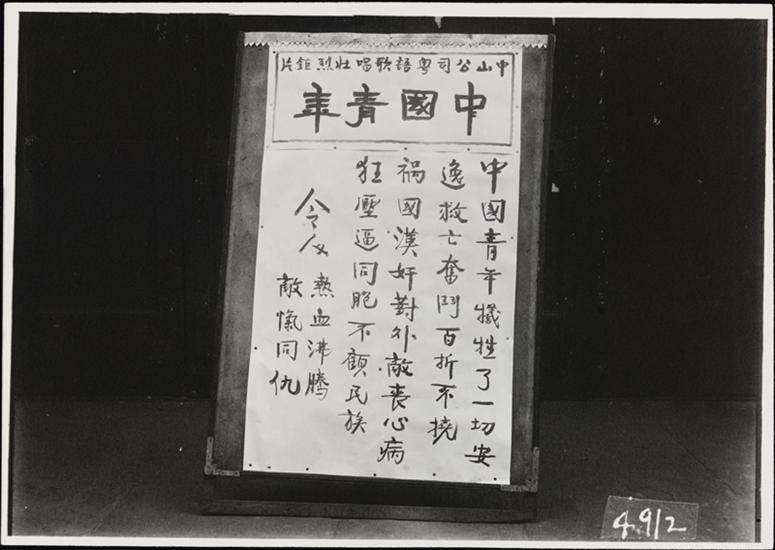 中山公司粵語歌唱壯烈鉅片
中國青年
中國青年犧牲了一切安
逸救亡奮鬥百折不撓
禍國漢奸對外敵喪心病
狂壓逼同胞不顧民族
令人
熱血沸騰
敵愾同仇
4912